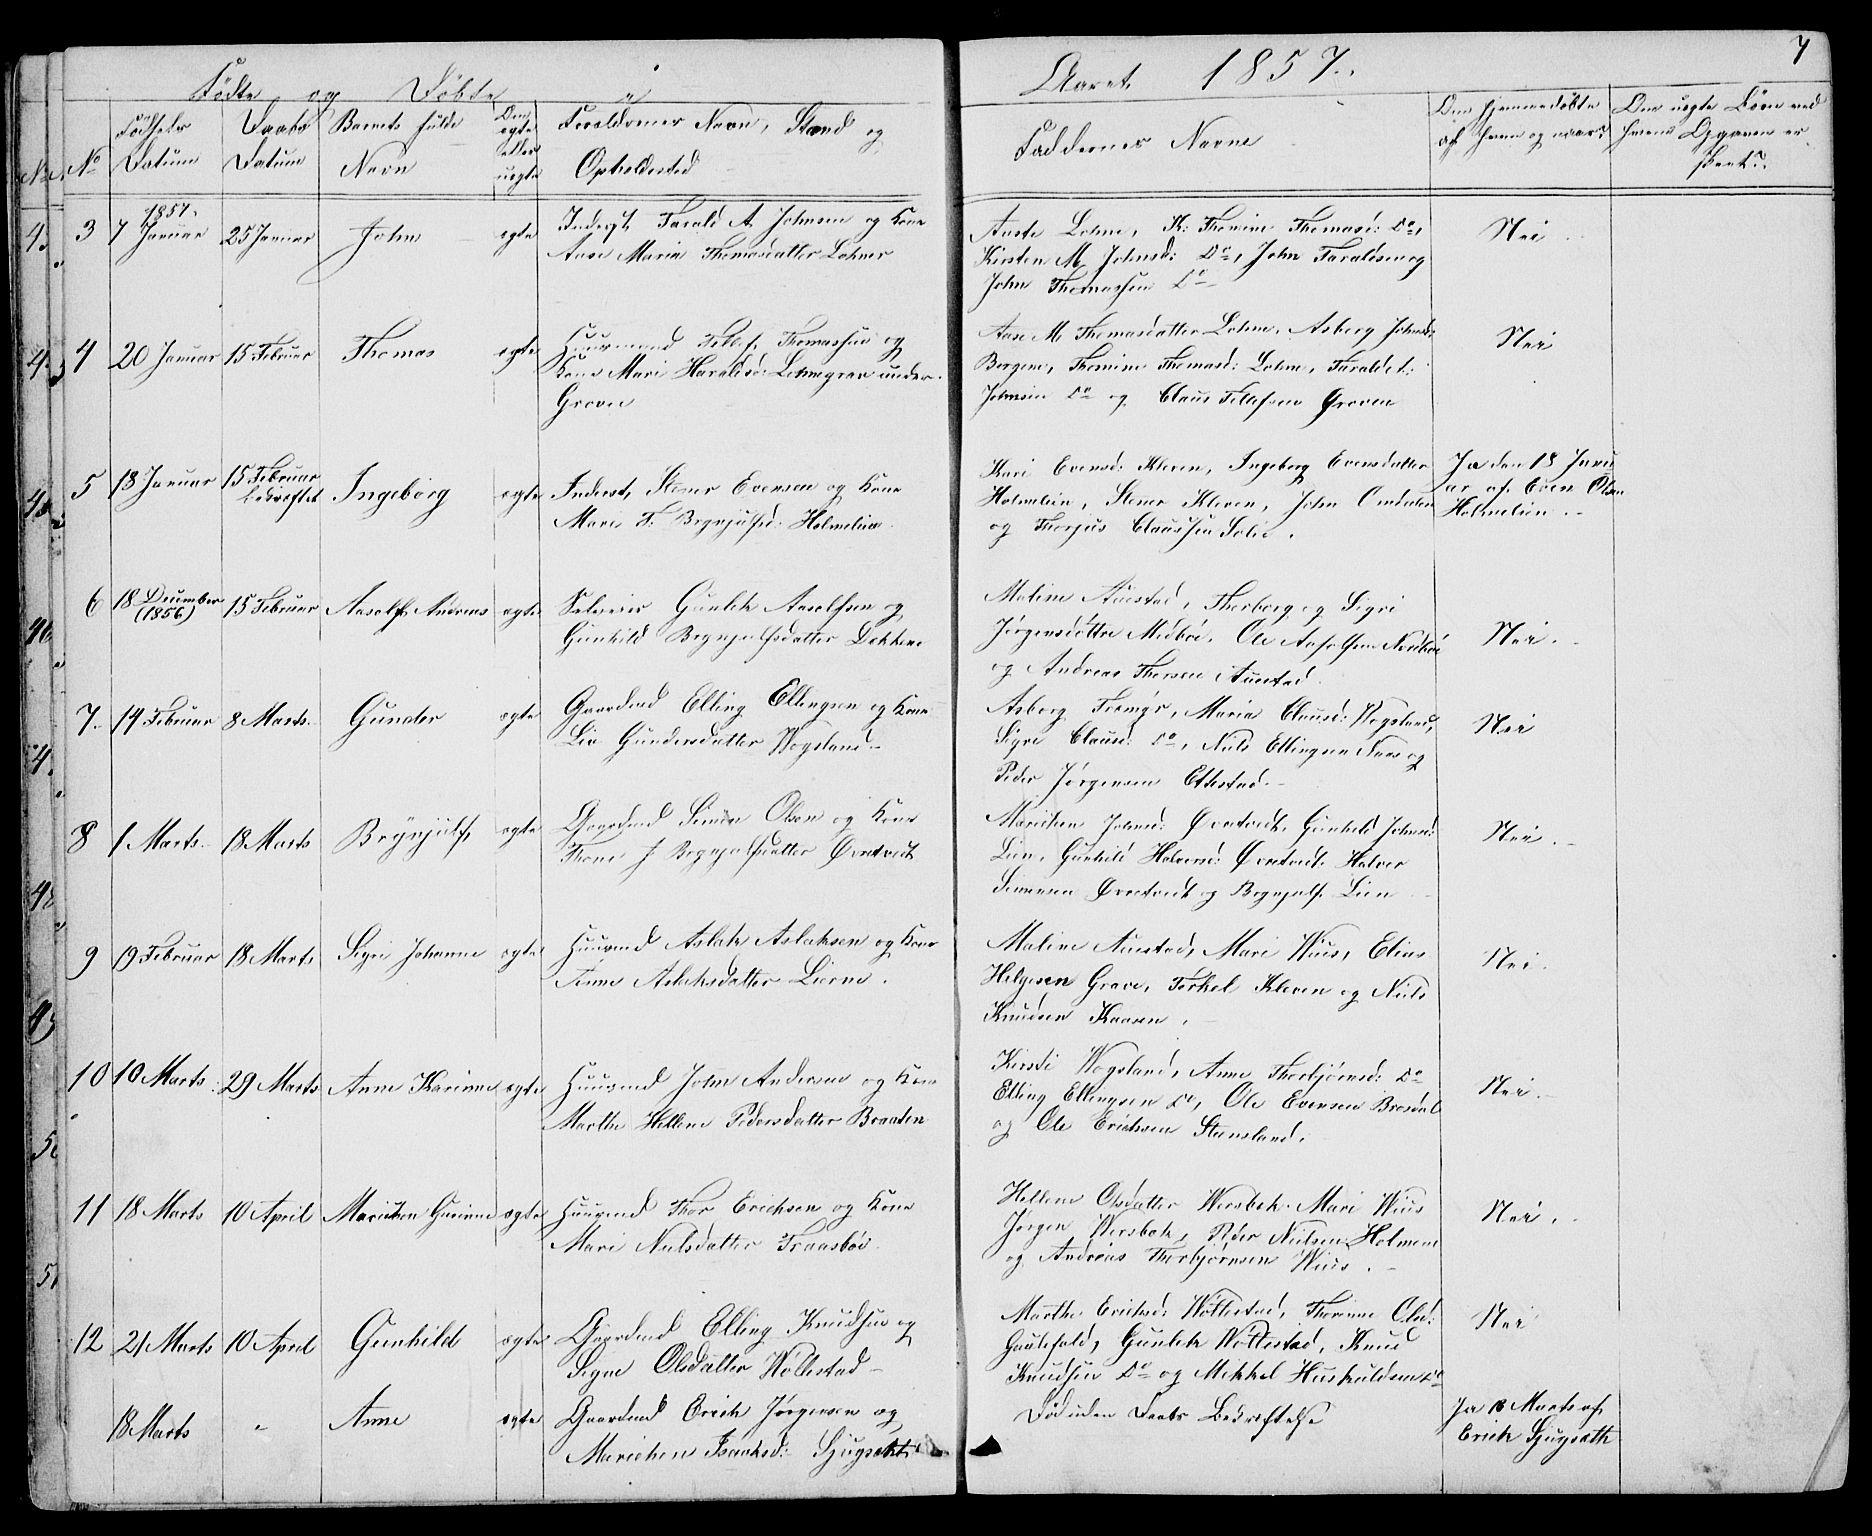 Födte og Döbte i Aaret 1857.
7
No
Födsels Datum
Daabs Datum
Barnets fulde Navn
Om ægte eller uægte
Forældrenes Navn, Stand og Opholdssted
Faddernes Navne
Om hjemmedøbte af hvem og naar?
Om uægte Börn ved hvem Opgaven er skeet?
3 7 Januar 1857. 25 Januar John ægte Inderst, Tarald A. Johnsen og Kone
Aase Maria Thomasdatter Lohner
Lohne, K. Thomine Thomasd: Do,
Kirsten M. Johnsd: Do, John Taraldsen og
John Thomassen Do
Nei
4 20 Januar 15 Februar Thomas ægte Huusmand Thomassen og
Kone Mari Haraldsd: Lohnegrav under
Groven
Aase M Thomasdatter Lohne, Asberg Johnsd:
Borgene, Thomine Thomasd: Lohne, Tarald
Johnsen Do og Claus Tellefsen Groven
Nei
5 18 Januar 15 Februar bekræftet Ingeborg ægte Inderst, Stener Evensen og Kone
Mari T. Brynjulfsd: Holmelien
Kari Evensd: Kleven, Ingeborg Evensdatter
Holmelien, Stener Kleven, John
og Thorjus Claussen Solie.
Ja den 18 Janu
ar af Even Olsen
Holmelien
6 18 December (1856) 15 Februar Aasolf Andreas ægte Selveier Gunlek Aasolfsen og
Gunhild Brynjulfsdatter Dokkene
Maline Auestad, Thorborg og Sigri
Jørgensdøttre Medböe, Ole Aasolfsen
og Andreas Thorsen Auestad.
Nei.
7. 14 Februar 8 Marts. Gunder ægte Gaardmd Elling Ellingsen og Kone
Liv Gundersdatter Wogsland
Asborg Maria Clausd: Wogsland,
Sigri Clausd: Do, Niels Ellingsen Naas og
Peder Jørgensen Ettestad.
Nei
8 1 Marts 18 Marts Brynjulf ægte Gaardmd Simon Olsen og Kone
Thone J Brynjulfsdatter Øvretvedt
Marichen Johnsd: Øvretvedt, Gunhild Johnsd:
Lien, Gunhild Halvorsd: Øvretvedt, Halvor
Simonsen Øvretvedt og Brynjulf Lien
Nei.
9 19 Februar 18 Marts Sigri Johanne ægte Huusmd Aslak Aslaksen og Kone
Anne Aslaksdatter Lierne.
Maline Auestad, Mari Wiüs, Elias
Helgesen Grave, Terkel Kleven og Niels
Knudsen Kaasen.
Nei.
10 10 Marts 29 Marts Anne Karine ægte Huusmd John Andersen og Kone
Marthe Hellene Pedersdatter Braaten
Kirsti Wogsland, Anne Thorbjörnsd: Do
Elling Ellingsen Do, Ole Evensen
og Ole Erichsen Steensland.
Nei.
11 18 Marts 10 April Marichen Gurine ægte Huusmd Thor Erichsen og Kone
Mari Nielsdatter Traasböe.
Hellene Olsdatter Wersbek. Mari Wiüs
Jørgen Wersbek, Peder Nielsen Holmene
og Andreas Thorbjörnsen Wiüs.
Nei.
12 21 Marts 10 April Gunhild ægte Gaardmd Elling Knudsen og
Signe Olsdatter Wöllestad
Marthe Ericksd: Wöllestad, Thorine Olsd:
Gaulefald, Gunlek Wöllestad, Knud
Knudsen Do og Mikkel Huskuldsen Do
Nei
18 Marts " Anne ægte Gaardmd Erich Jørgensen og
Marichen Isaaksd: Sjugsæth
Död uden Daabs Bekræftelse
Ja 18 Marts af
Erich Sjugsæth